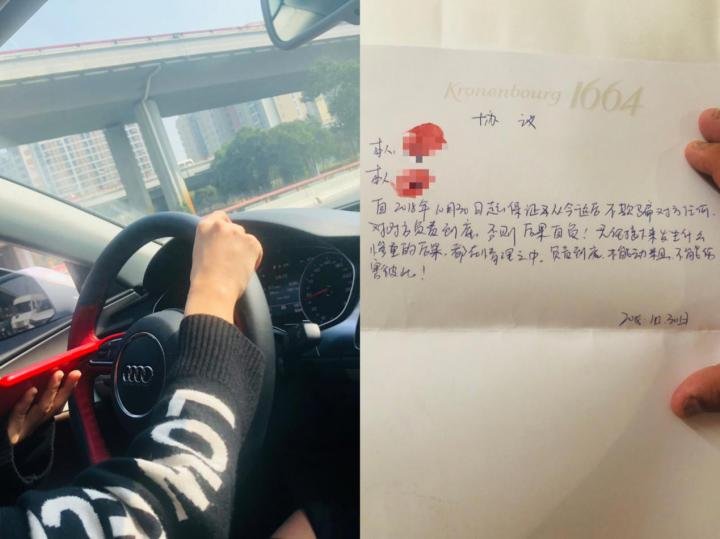 Kronenbourg 1664
协议
本人:
本人:
自2018年10月30日起,保证从今后不欺骗对方任何.
对对方负责到底,否则后果自负!无论接下来发生什么
的后果,都在情理之中,负责到底,不能动粗,不能伤
害彼此!
2018.10.30日